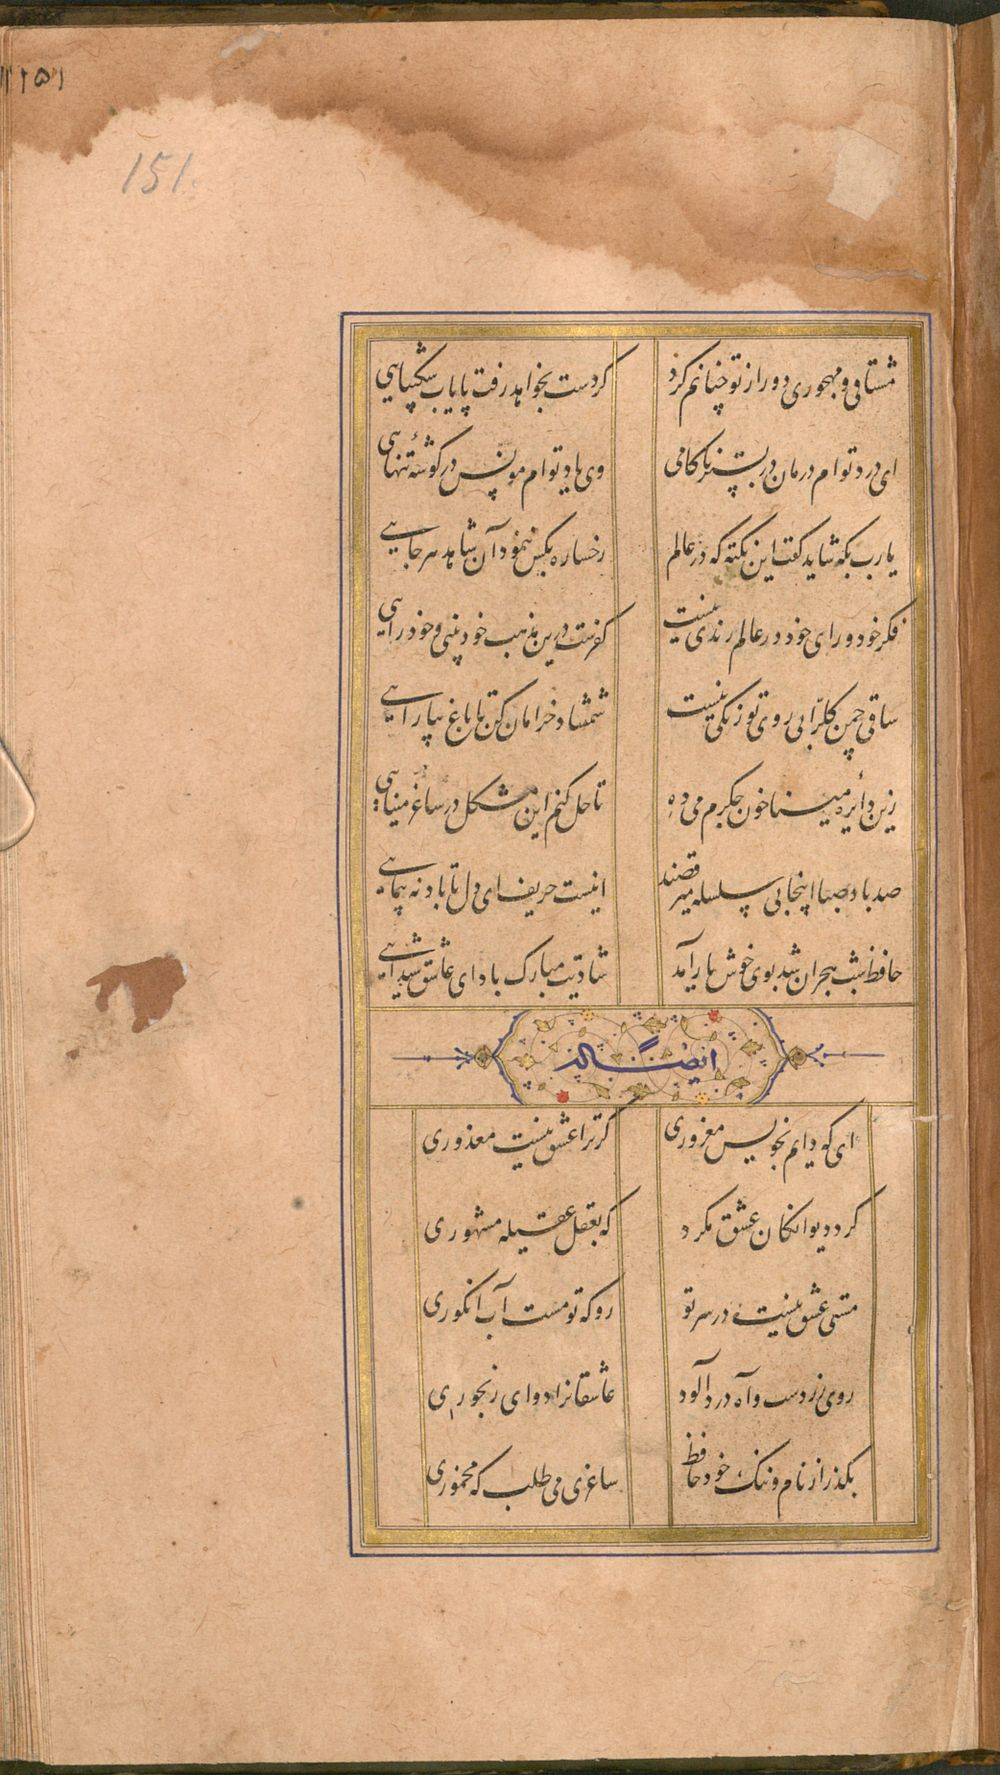 ۱۵۱
151.
مشتاقی و مهجوری دور از تو چنانم کرد کز دست بخواهد رفت پایاب شکیبایی
ای درد توام درمان در بستر ناکامی وی یاد توام مونس در گوشهٔ تنهایی
یارب بکه شاید گفت این نکته که در عالم رخساره بکس ننمود آن شاهد هرجایی
فکر خود و رای خود در عالم رندی نیست کفرست درین مذهب خودبینی و خودرایی
ساقی چمن گل را بی روی تو رنگی نیست شمشاد خرامان کن تا باغ بیارایی
زین دایره مینا خون جگرم می ده تا حل کنم این مشکل در ساغر مینایی
صد باد صبا اینجا بی سلسله میرقصند اینست حریف ای دل تا باد نه پیمایی
حافظ شب هجران شد بوی خوش یار آمد شادیت مبارک باد ای عاشق شیدایی
ایضاً له
ای که دایم بخویش مغروری گر ترا عشق نیست معذوری
گرد دیوانگان عشق مگرد که بعقل عقیله مشهوری
مستی عشق نیست در سر تو رو که تو مست آب انگوری
روی زردست و آه دردآلود عاشقانرا دوای رنجوری
بگذر از نام و ننگ خود حافظ ساغر می طلب که مخموری